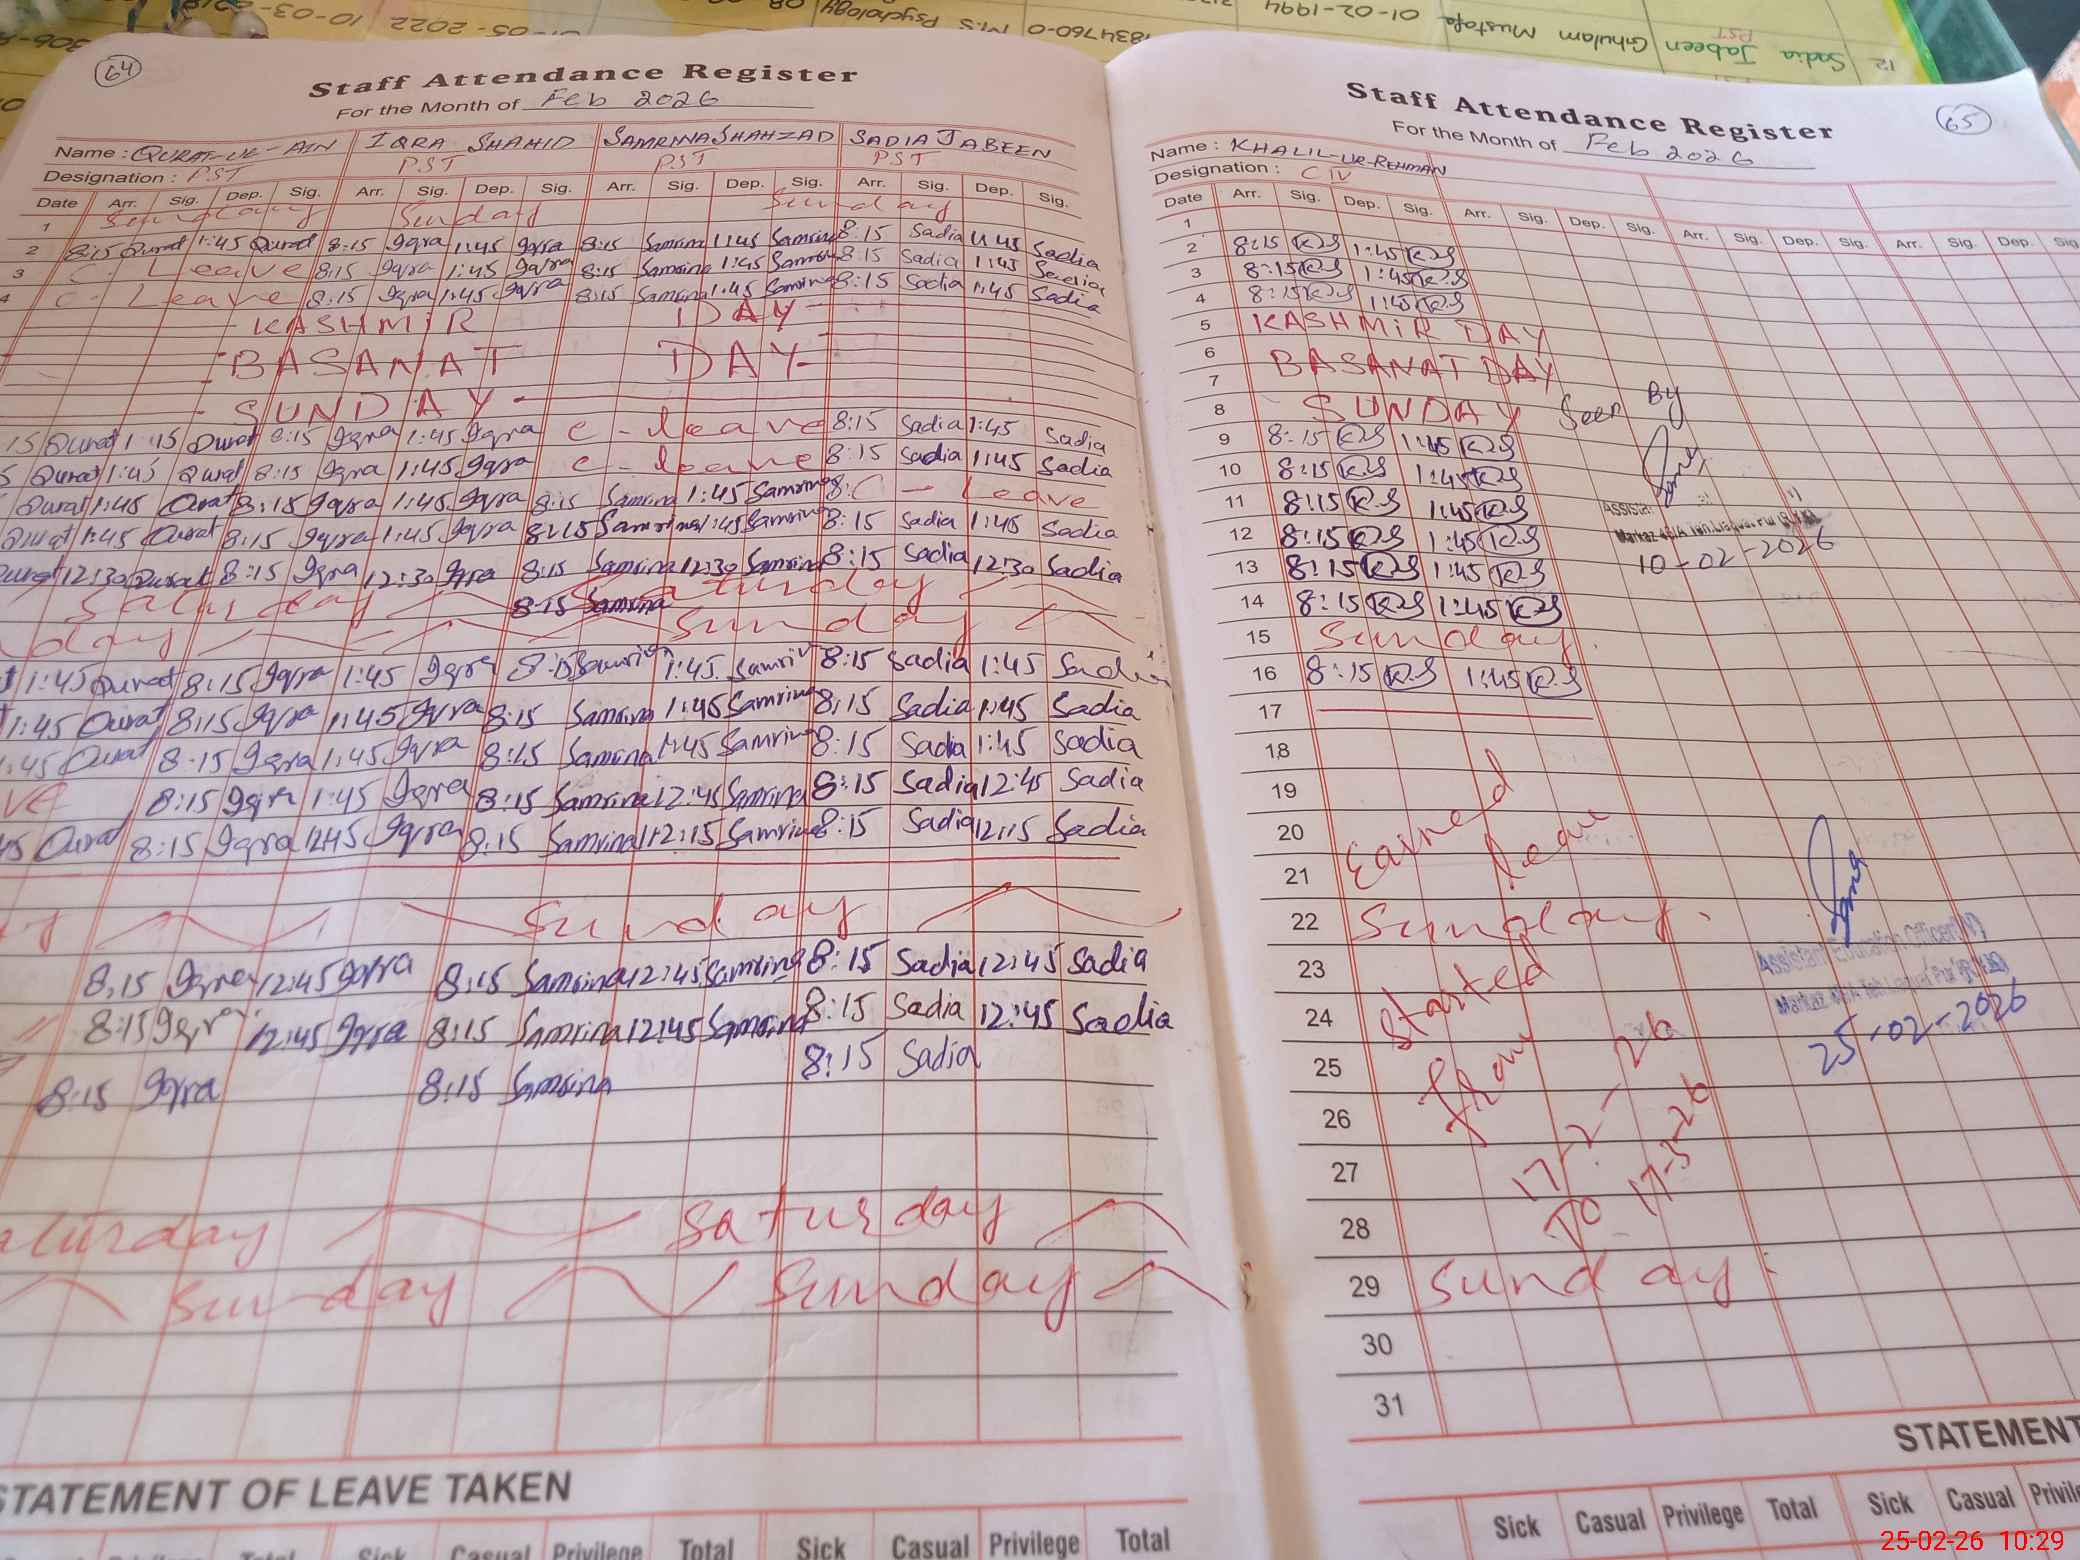 12 Sadia Jabeen Ghulam Mustafa 01-02-1994
PST
1834760-0 M.S Psychology
01-05-2022 10-03-
64
Staff Attendance Register
For the Month of Feb 2026
Name : QURAT-UL-AIN IQRA SHAHID SAMRINA SHAHZAD SADIA JABEEN
Designation : PST PST PST PST
Date Arr. Sig. Dep. Sig. Arr. Sig. Dep. Sig. Arr. Sig. Dep. Sig. Arr. Sig. Dep. Sig.
1 Sunday Sunday Sunday
2 8:15 Qurat 1:45 Qurat 8:15 Iqra 1:45 Iqra 8:15 Samrina 1:45 Samrina 8:15 Sadia 1:45 Sadia
3 C- Leave 8:15 Iqra 1:45 Iqra 8:15 Samrina 1:45 Samrina 8:15 Sadia 1:45 Sadia
4 C- Leave 8:15 Iqra 1:45 Iqra 8:15 Samrina 1:45 Samrina 8:15 Sadia 1:45 Sadia
KASHMIR DAY
BASANAT DAY
SUNDAY
15 Qurat 1:45 Qurat 8:15 Iqra 1:45 Iqra c-leave 8:15 Sadia 1:45 Sadia
5 Qurat 1:45 Qurat 8:15 Iqra 1:45 Iqra c-leave 8:15 Sadia 1:45 Sadia
Qurat 1:45 Qurat 8:15 Iqra 1:45 Iqra 8:15 Samrina 1:45 Samrina 8: C - Leave
Qurat 1:45 Qurat 8:15 Iqra 1:45 Iqra 8:15 Samrina 1:45 Samrina 8:15 Sadia 1:45 Sadia
Qurat 12:30 Qurat 8:15 Iqra 12:30 Iqra 8:15 Samrina 12:30 Samrina 8:15 Sadia 12:30 Sadia
Saturday 8:15 Samrina Saturday
day Sunday
1:45 Qurat 8:15 Iqra 1:45 Iqra 8:15 Samrina 1:45 Samrin 8:15 Sadia 1:45 Sadia
1:45 Qurat 8:15 Iqra 1:45 Iqra 8:15 Samrina 1:45 Samrina 8:15 Sadia 1:45 Sadia
1:45 Qurat 8:15 Iqra 1:45 Iqra 8:15 Samrina 1:45 Samrina 8:15 Sadia 1:45 Sadia
VE 8:15 Iqra 1:45 Iqra 8:15 Samrina 12:45 Samrina 8:15 Sadia 12:45 Sadia
45 Qurat 8:15 Iqra 12:45 Iqra 8:15 Samrina 12:15 Samrina 8:15 Sadia 12:15 Sadia
y Sunday
8:15 Iqra 12:45 Iqra 8:15 Samrina 12:45 Samrina 8:15 Sadia 12:45 Sadia
8:15 Iqra 12:45 Iqra 8:15 Samrina 12:45 Samrina 8:15 Sadia 12:45 Sadia
8:15 Iqra 8:15 Samrina 8:15 Sadia
aturday Saturday
Sunday Sunday
STATEMENT OF LEAVE TAKEN
Privilege Total Sick Casual Privilege Total Sick Casual Privilege Total
65
Staff Attendance Register
For the Month of Feb 2026
Name : KHALIL-UR-REHMAN
Designation : C IV
Date Arr. Sig. Dep. Sig. Arr. Sig. Dep. Sig. Arr. Sig. Dep. Sig. Arr. Sig. Dep. Sig
1
2 8:15 1:45
3 8:15 1:45
4 8:15 1:45
5 KASHMIR DAY
6 BASANAT DAY
7
8 SUNDAY Seen By
9 8:15 1:45
10 8:15 1:45
11 8:15 1:45
12 8:15 1:45
13 8:15 1:45
14 8:15 1:45
Markaz
10-02-2026
15 Sunday
16 8:15 1:45
17
18
19
20
21
Earned Leave
22 Sunday
23
24
25
26
27
28
Started from 17-2-26
TO 17-3-26
Assistant Education Officer
Markaz
25-02-2026
29 Sunday
30
31
STATEMENT
Sick Casual Privilege Total Sick Casual Privile
25-02-26 10:29